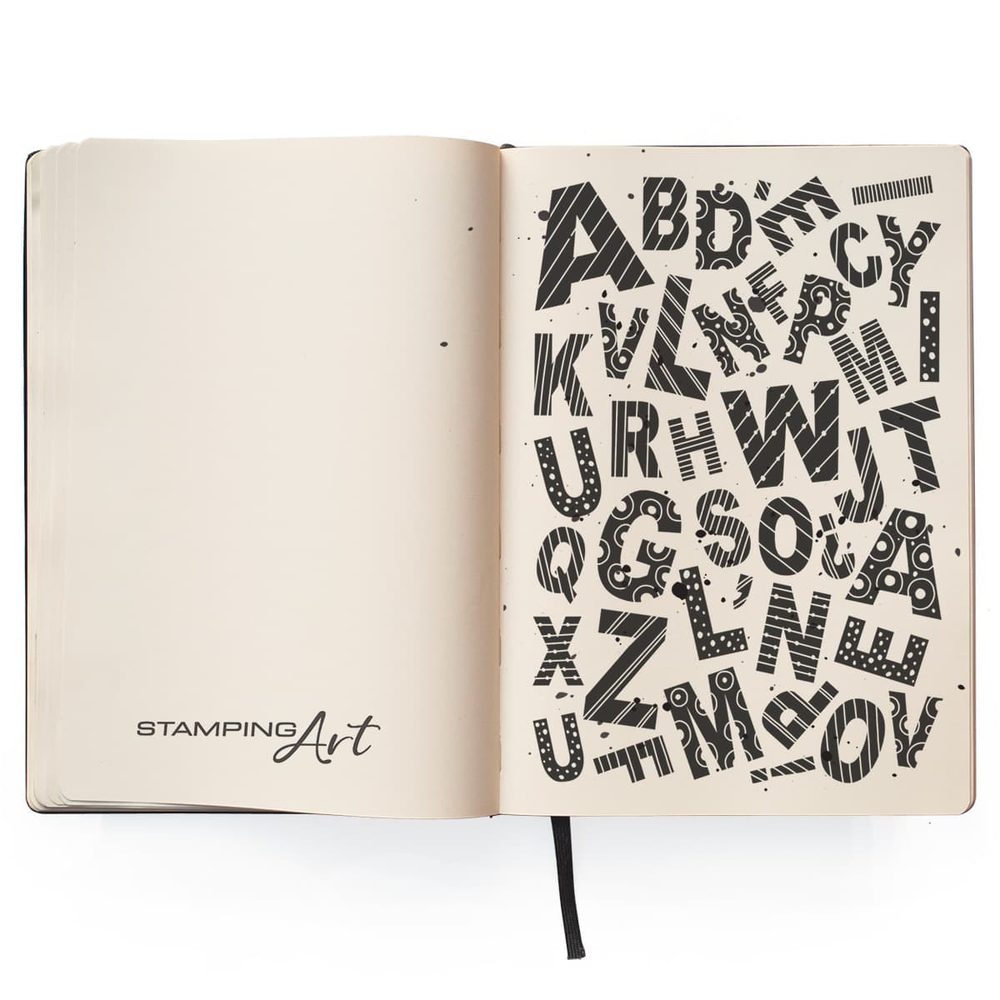 STAMPING Art
A B D E I
C Y
V L N F P M I
K R H W J T
U G S O A
Q L N
X Z E
U F M P O V